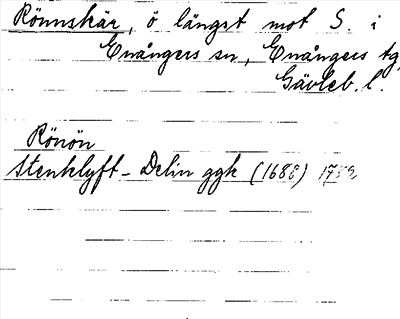 Rönnskär, ö längst mot S. i
Enångers sn, Enångers tg,
Gävleb. l.
Rönön
Stenklyft - Delin ggk (1688) 1759